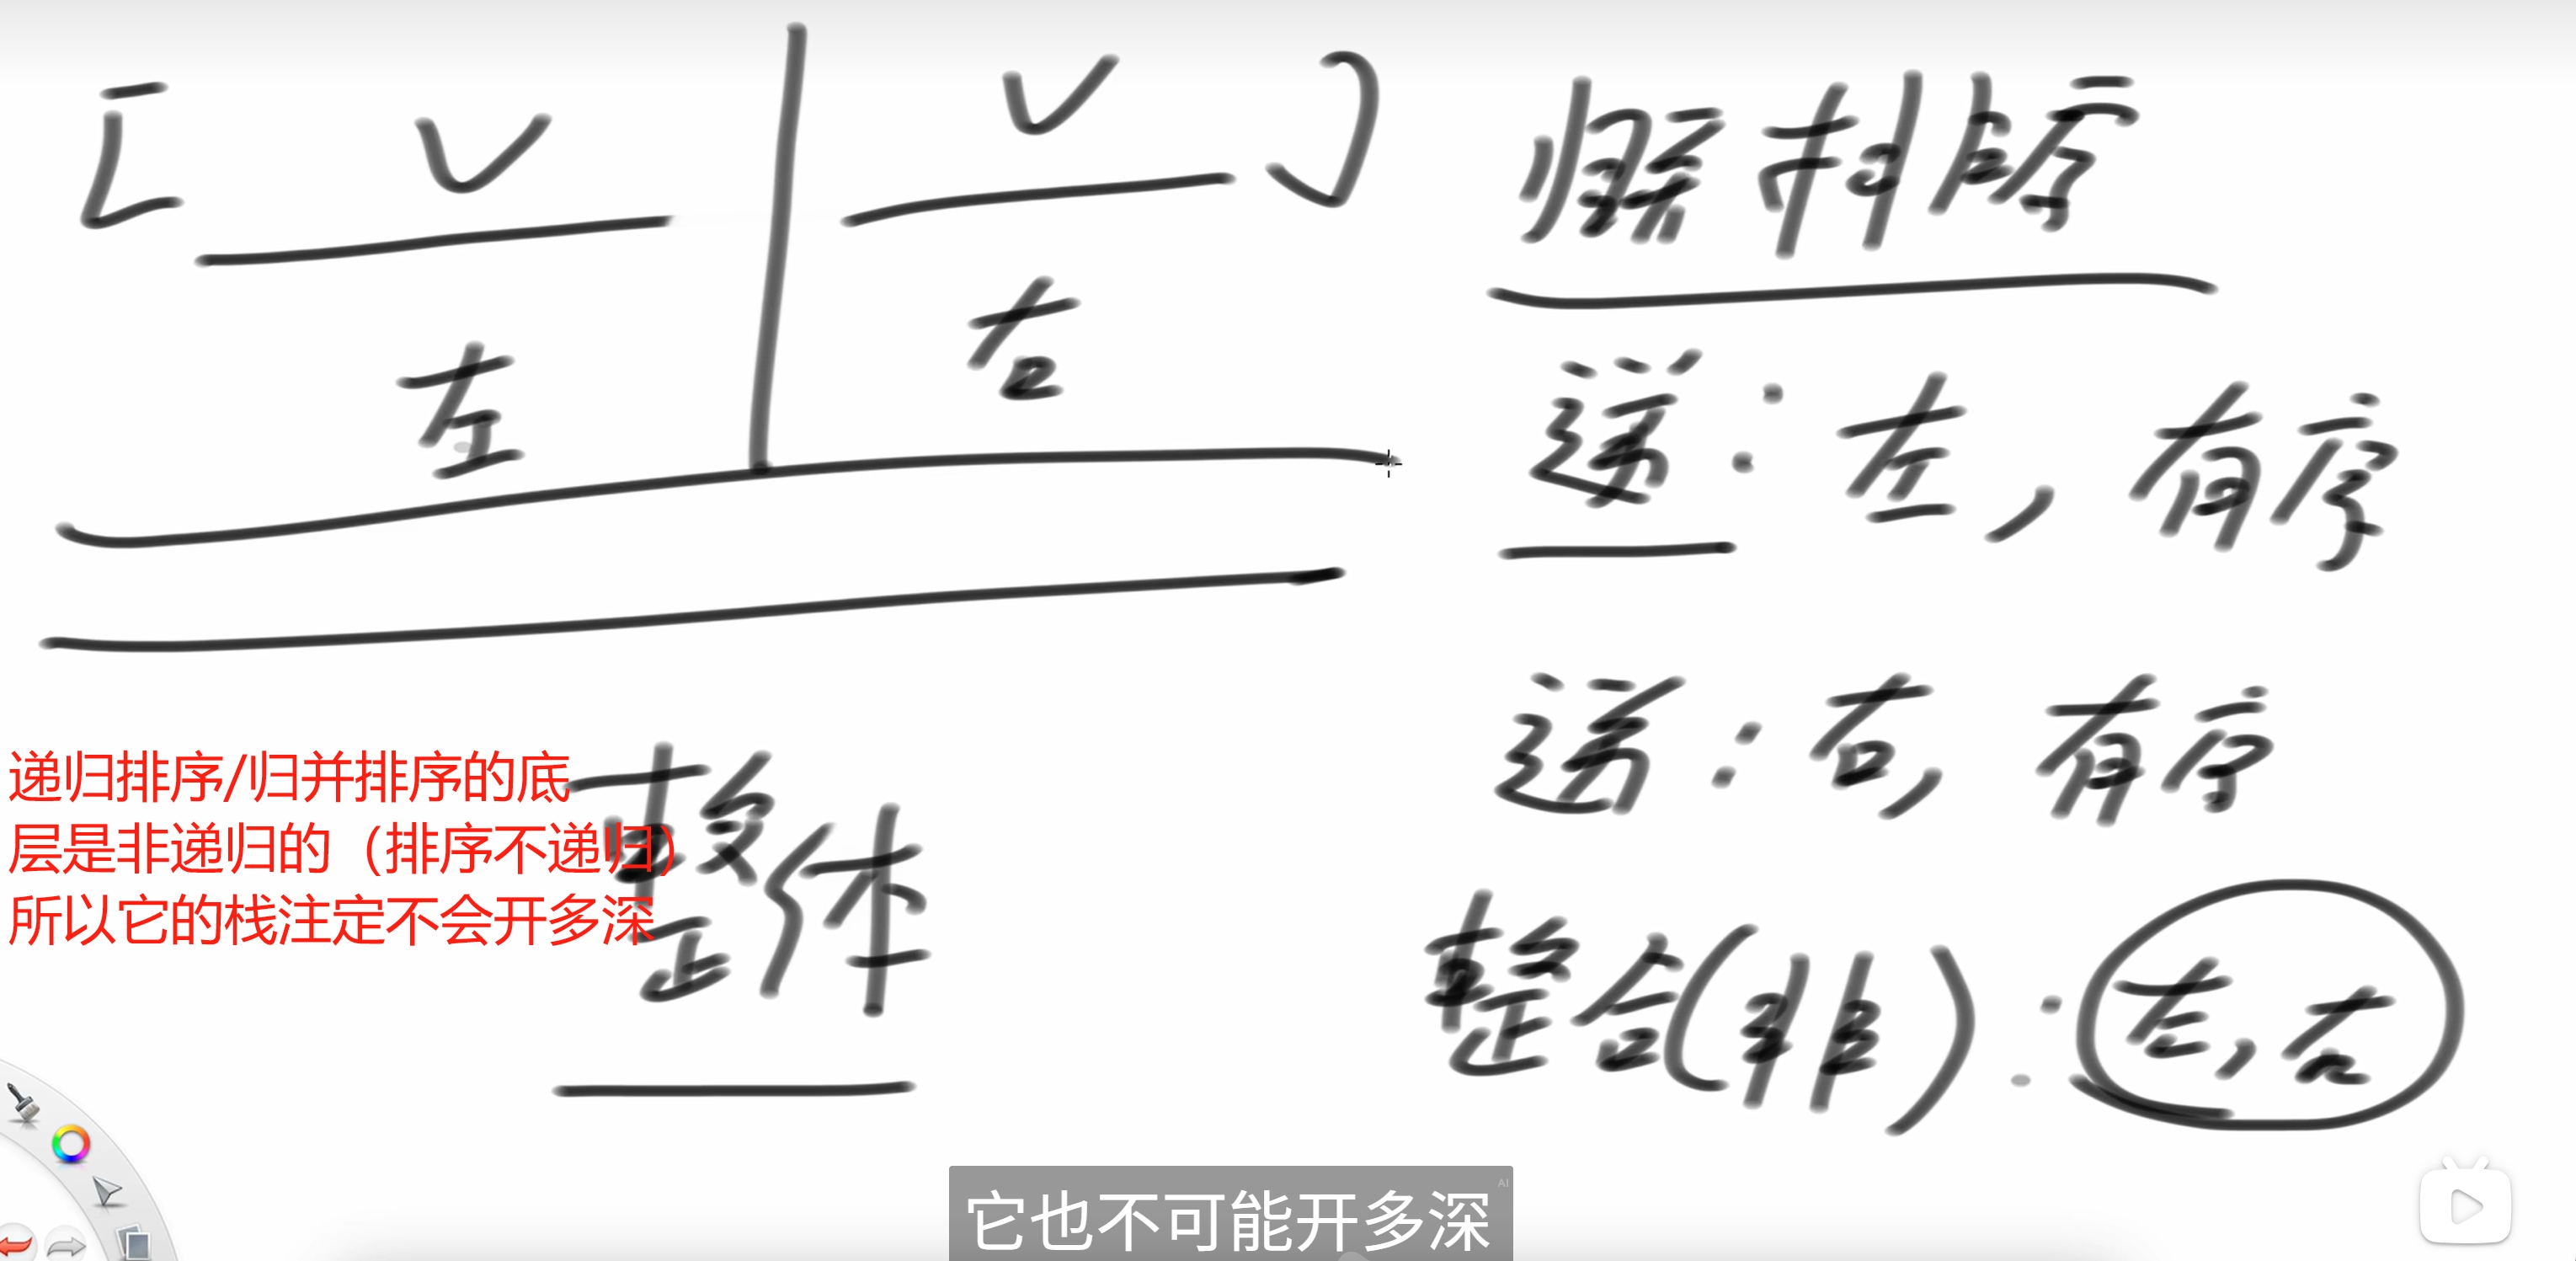 [ ]
左
右
归并排序
递：左，有序
递：右，有序
整体
整合(非)：左，右
递归排序/归并排序的底
层是非递归的（排序不递归）
所以它的栈注定不会开多深
它也不可能开多深
AI